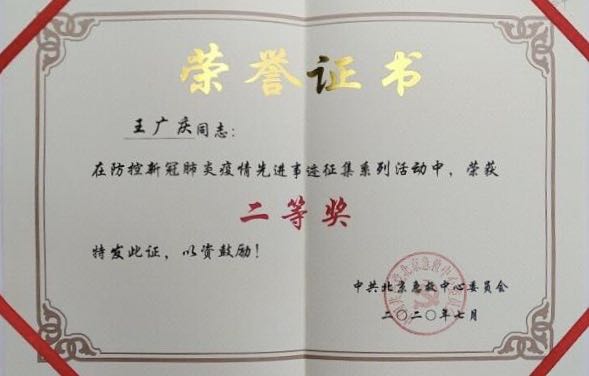 荣誉证书
王广庆同志：
在防控新冠肺炎疫情先进事迹征集系列活动中，荣获
二等奖
特发此证，以资鼓励！
中共北京急救中心委员会
二〇二〇年七月